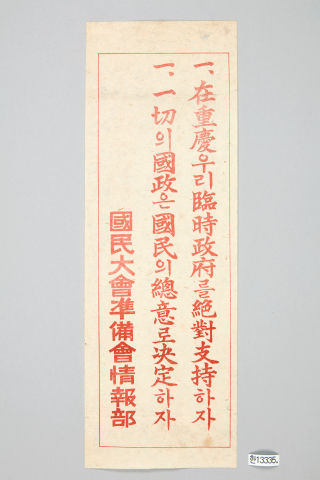 一、在重慶우리臨時政府를絕對支持하자
一、一切의國政은國民의總意로決定하자
國民大會準備會情報部
한13335.